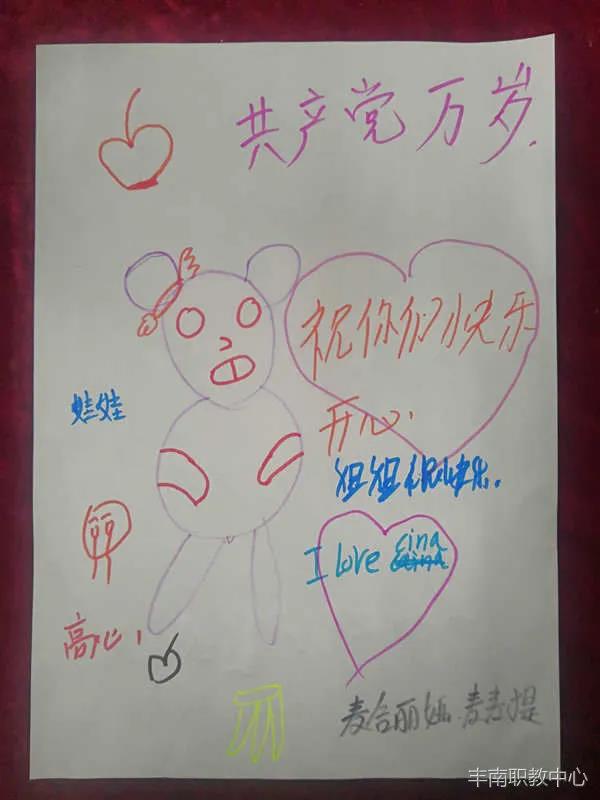 共产党万岁.
祝你们快乐
开心.
蛙娃
姐姐很快乐.
I love cina
高心,
麦合丽娅.麦麦提
丰南职教中心